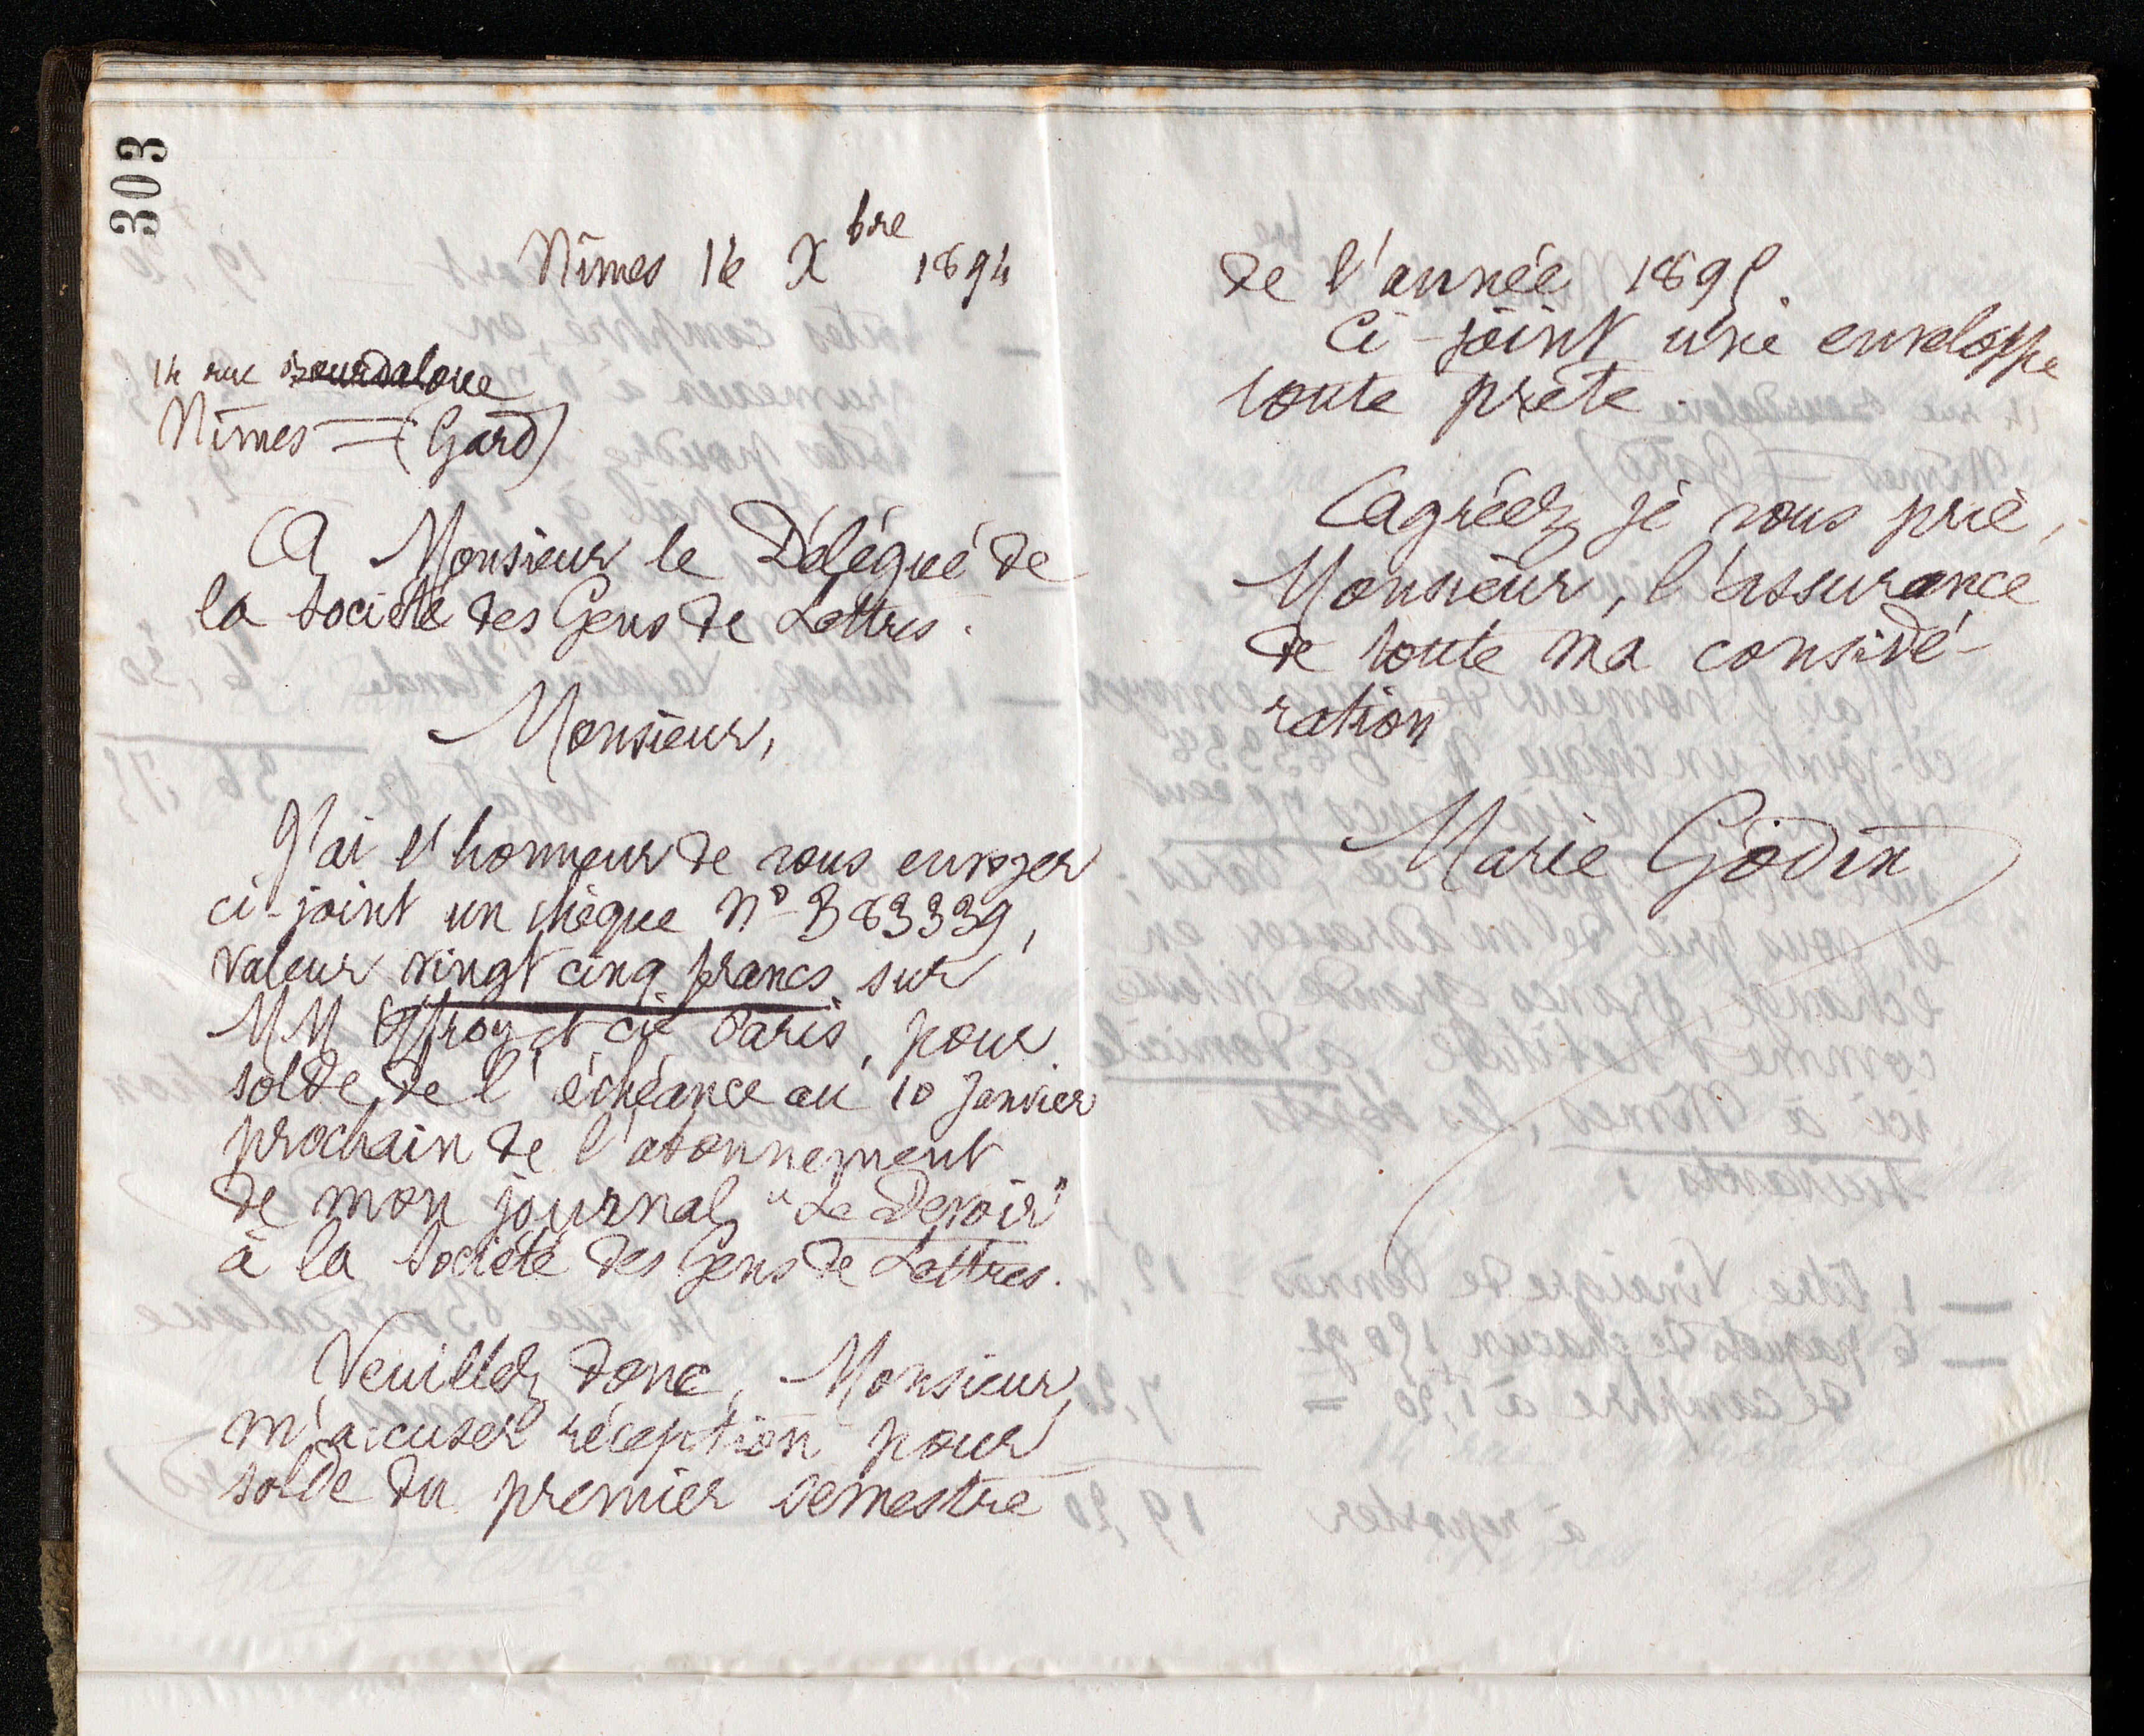 303
Nîmes 16 Xbre 1894
14 rue Bourdaloue
Nîmes = (Gard)
A Monsieur le Délégué de
la Société des Gens de Lettres.
Monsieur,
J'ai l'honneur de vous envoyer
ci-joint un chèque N° B 83339,
valeur vingt cinq francs sur
MM Offroy et Cie Paris, pour
solde de l'échéance au 10 Janvier
prochain de l'abonnement
de mon journal "Le Devoir"
à la Société des Gens de Lettres.
Veuillez donc, Monsieur,
m'accuser réception pour
solde du premier semestre
de l'année 1895.
Ci-joint une enveloppe
toute prête
Agréez, je vous prie,
Monsieur, l'assurance
de toute ma considé-
ration
Marie Godin